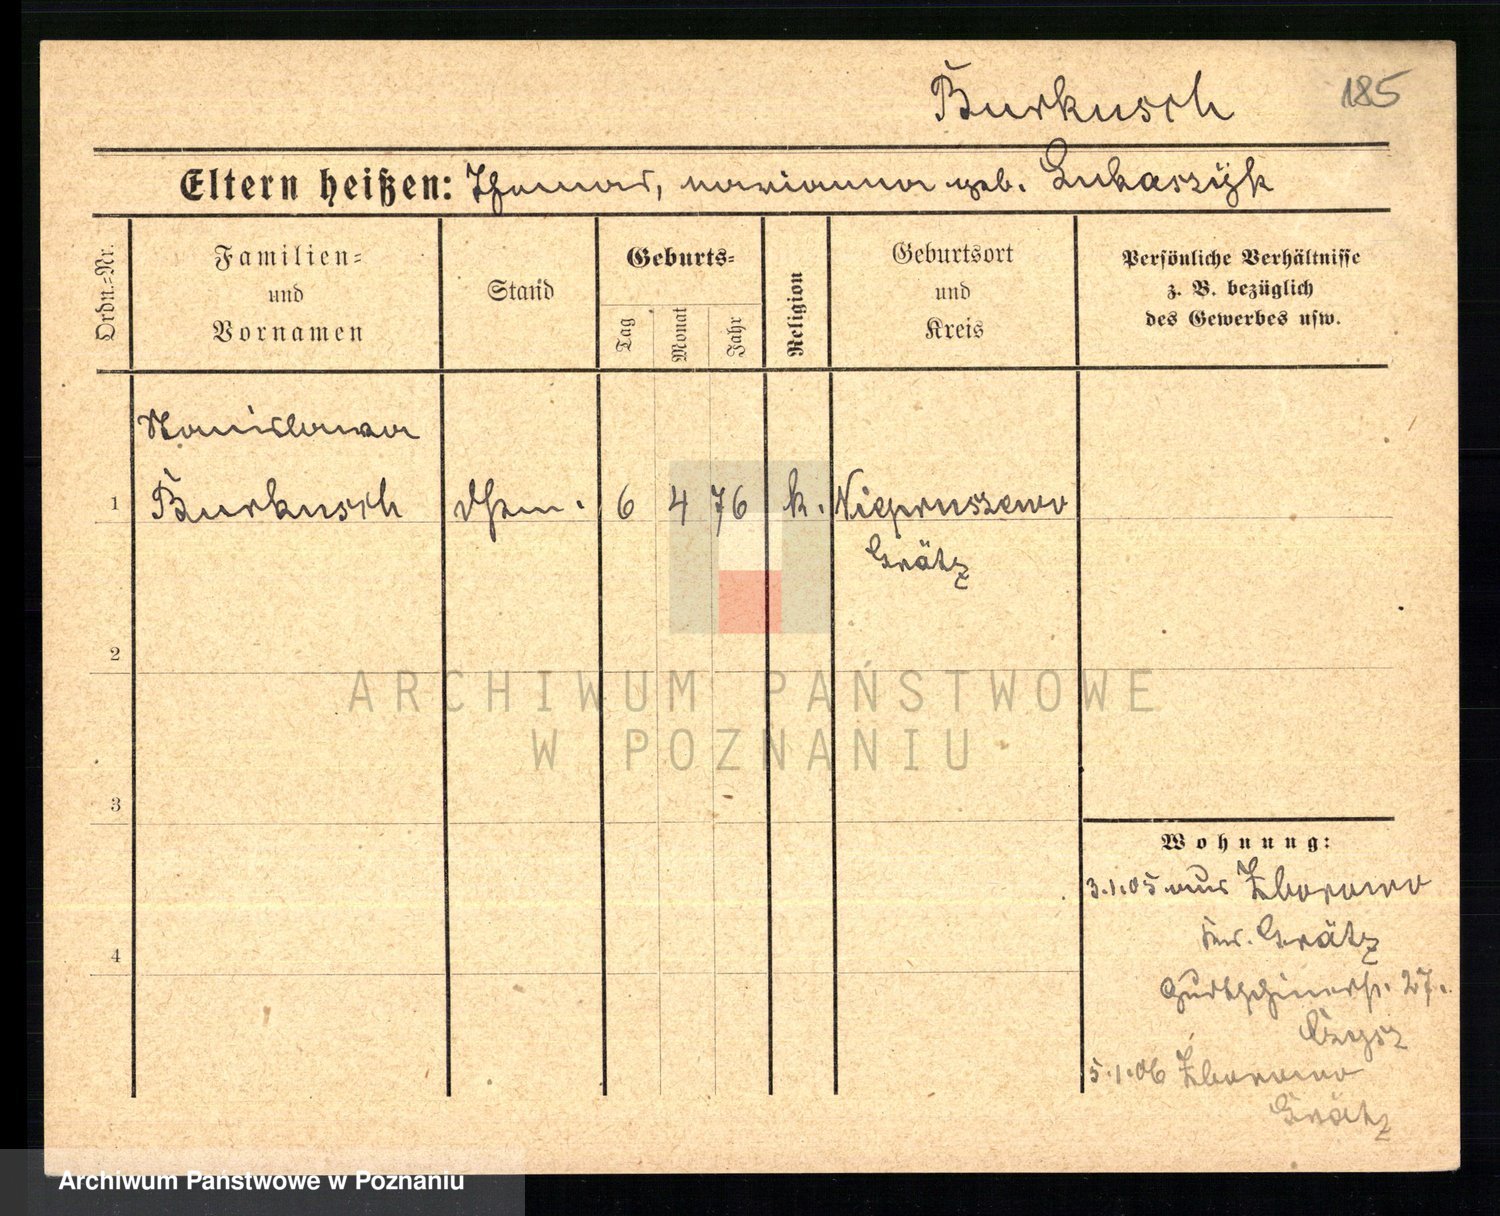 Burkusch 185
Eltern heißen: Thomas, Marianna geb. Lukaszÿk
Ordn.-Nr.
Familien-
und
Vornamen
Stand
Geburts-
Tag
Monat
Jahr
Religion
Geburtsort
und
Kreis
Persönliche Verhältnisse
z. B. bezüglich
des Gewerbes usw.
Stanislawa
1 Burkusch 6 4 76 k. Niepruszewo
Grätz
2
3
4
Wohnung:
3.1.05 aus Zborowo
Kr. Grätz
Gurtschinerstr. 27.
5.1.06 Zborowo
Grätz
ARCHIWUM PAŃSTWOWE
W POZNANIU
Archiwum Państwowe w Poznaniu